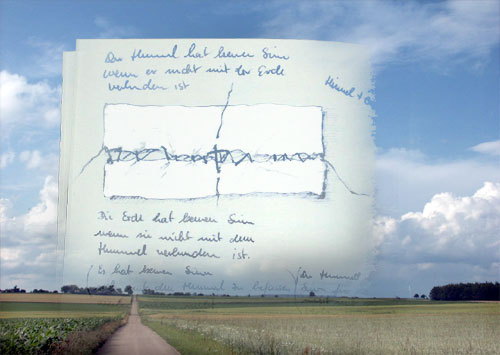 Der Himmel hat keinen Sinn
wenn er nicht mit der Erde
verbunden ist
Himmel +
Die Erde hat keinen Sinn
wenn sie nicht mit dem
Himmel verbunden ist.
Es hat keinen Sinn
Der Himmel
den Himmel zu